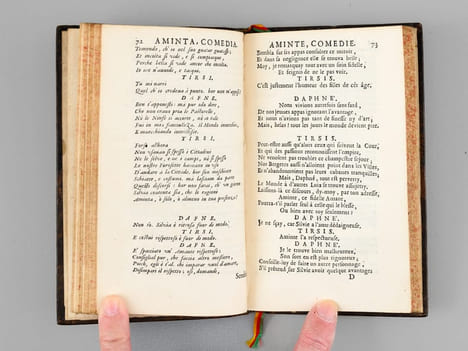 72 AMINTA, COMEDIA.
Temendo, ch'ei nol sia guatar gustasse;
Et incolta si vede, e si compiacque,
Perche bella si vede ancor che incolta.
Io me n'avuide, e tacque.
TIRSI.
Tu mi narri
Quel ch'io credeva à punto. hor non m'apposi?
DAFNE.
Ben t'apponesti: ma pur odo dire,
Che non erano pria le Pastorelle,
Ne le Ninfe sì accorte, nè io tale
Fui in mia fanciullezza. Il Mondo invecchia,
E invecchiando intristisce.
TIRSI.
Forse allhora
Non usavan sì spesso i Cittadini
Ne le selve, e ne i campi, nè sì spesso
Le nostre Forosette haveano in uso
D'andare à la Cittade. hor son mischiate
Schiatte, e costumi. ma lasciam da parte
Questi discorsi: hor non farai, ch'un giorno
Silvia contenta sia, che le ragioni
Aminta, ò solo, ò almeno in tua presenza?
DAFNE.
Non sò. Silvia è ritrosa fuor di modo.
TIRSI.
E costui rispettoso è fuor di modo.
DAFNE.
E' spacciato vn' Amante rispettoso:
Consiglial pur, che faccia altro mestiero,
Poich' egli è tal. chi imparar vuol d'amare,
Disimpari il rispetto; osi, domandi,
AMINTE, COMEDIE. 73
Sembla sur ses appas consulter ce miroir,
Et dans sa négligence elle se trouva belle;
Moy, je remarquay tout avec un soin fidelle,
Et feignis de ne pas voir.
TIRSIS.
C'est justement l'humeur des filles de cét âge.
DAPHNÉ.
Nous vivions autrefois sans fard,
De nos jeunes appas ignorant l'avantage,
Et nous n'avions pas tant de finesse ny d'art,
Mais, helas! tous les jours le monde devient pire.
TIRSIS.
Peut-estre aussi qu'alors ceux qui suivent la Cour,
Et qui des passions reconnoissent l'empire,
Ne venoient pas troubler ce champestre sejour,
Nos Bergeres aussi n'alloient point dans les Villes,
Et n'abandonnoient pas leurs cabanes tranquilles,
Mais, Daphné, tout est perverty,
Le Monde à d'autres Loix se trouve assujetty,
Laissons-là ce discours, dy-moy, par ton adresse,
Aminte, ce fidele Amant,
Pourra-t'il parler seul à celle qui le blesse,
Ou bien avec toy seulement?
DAPHNÉ.
Je ne sçay, car Silvie a l'ame dédaigneuse,
TIRSIS.
Aminte l'a respectueuse.
DAPHNÉ.
Je le trouve bien malheureux,
Son sort en est plus rigoureux,
Conseille-luy de faire un autre personnage,
S'il prétend sur Silvie avoir quelque avantage,
D